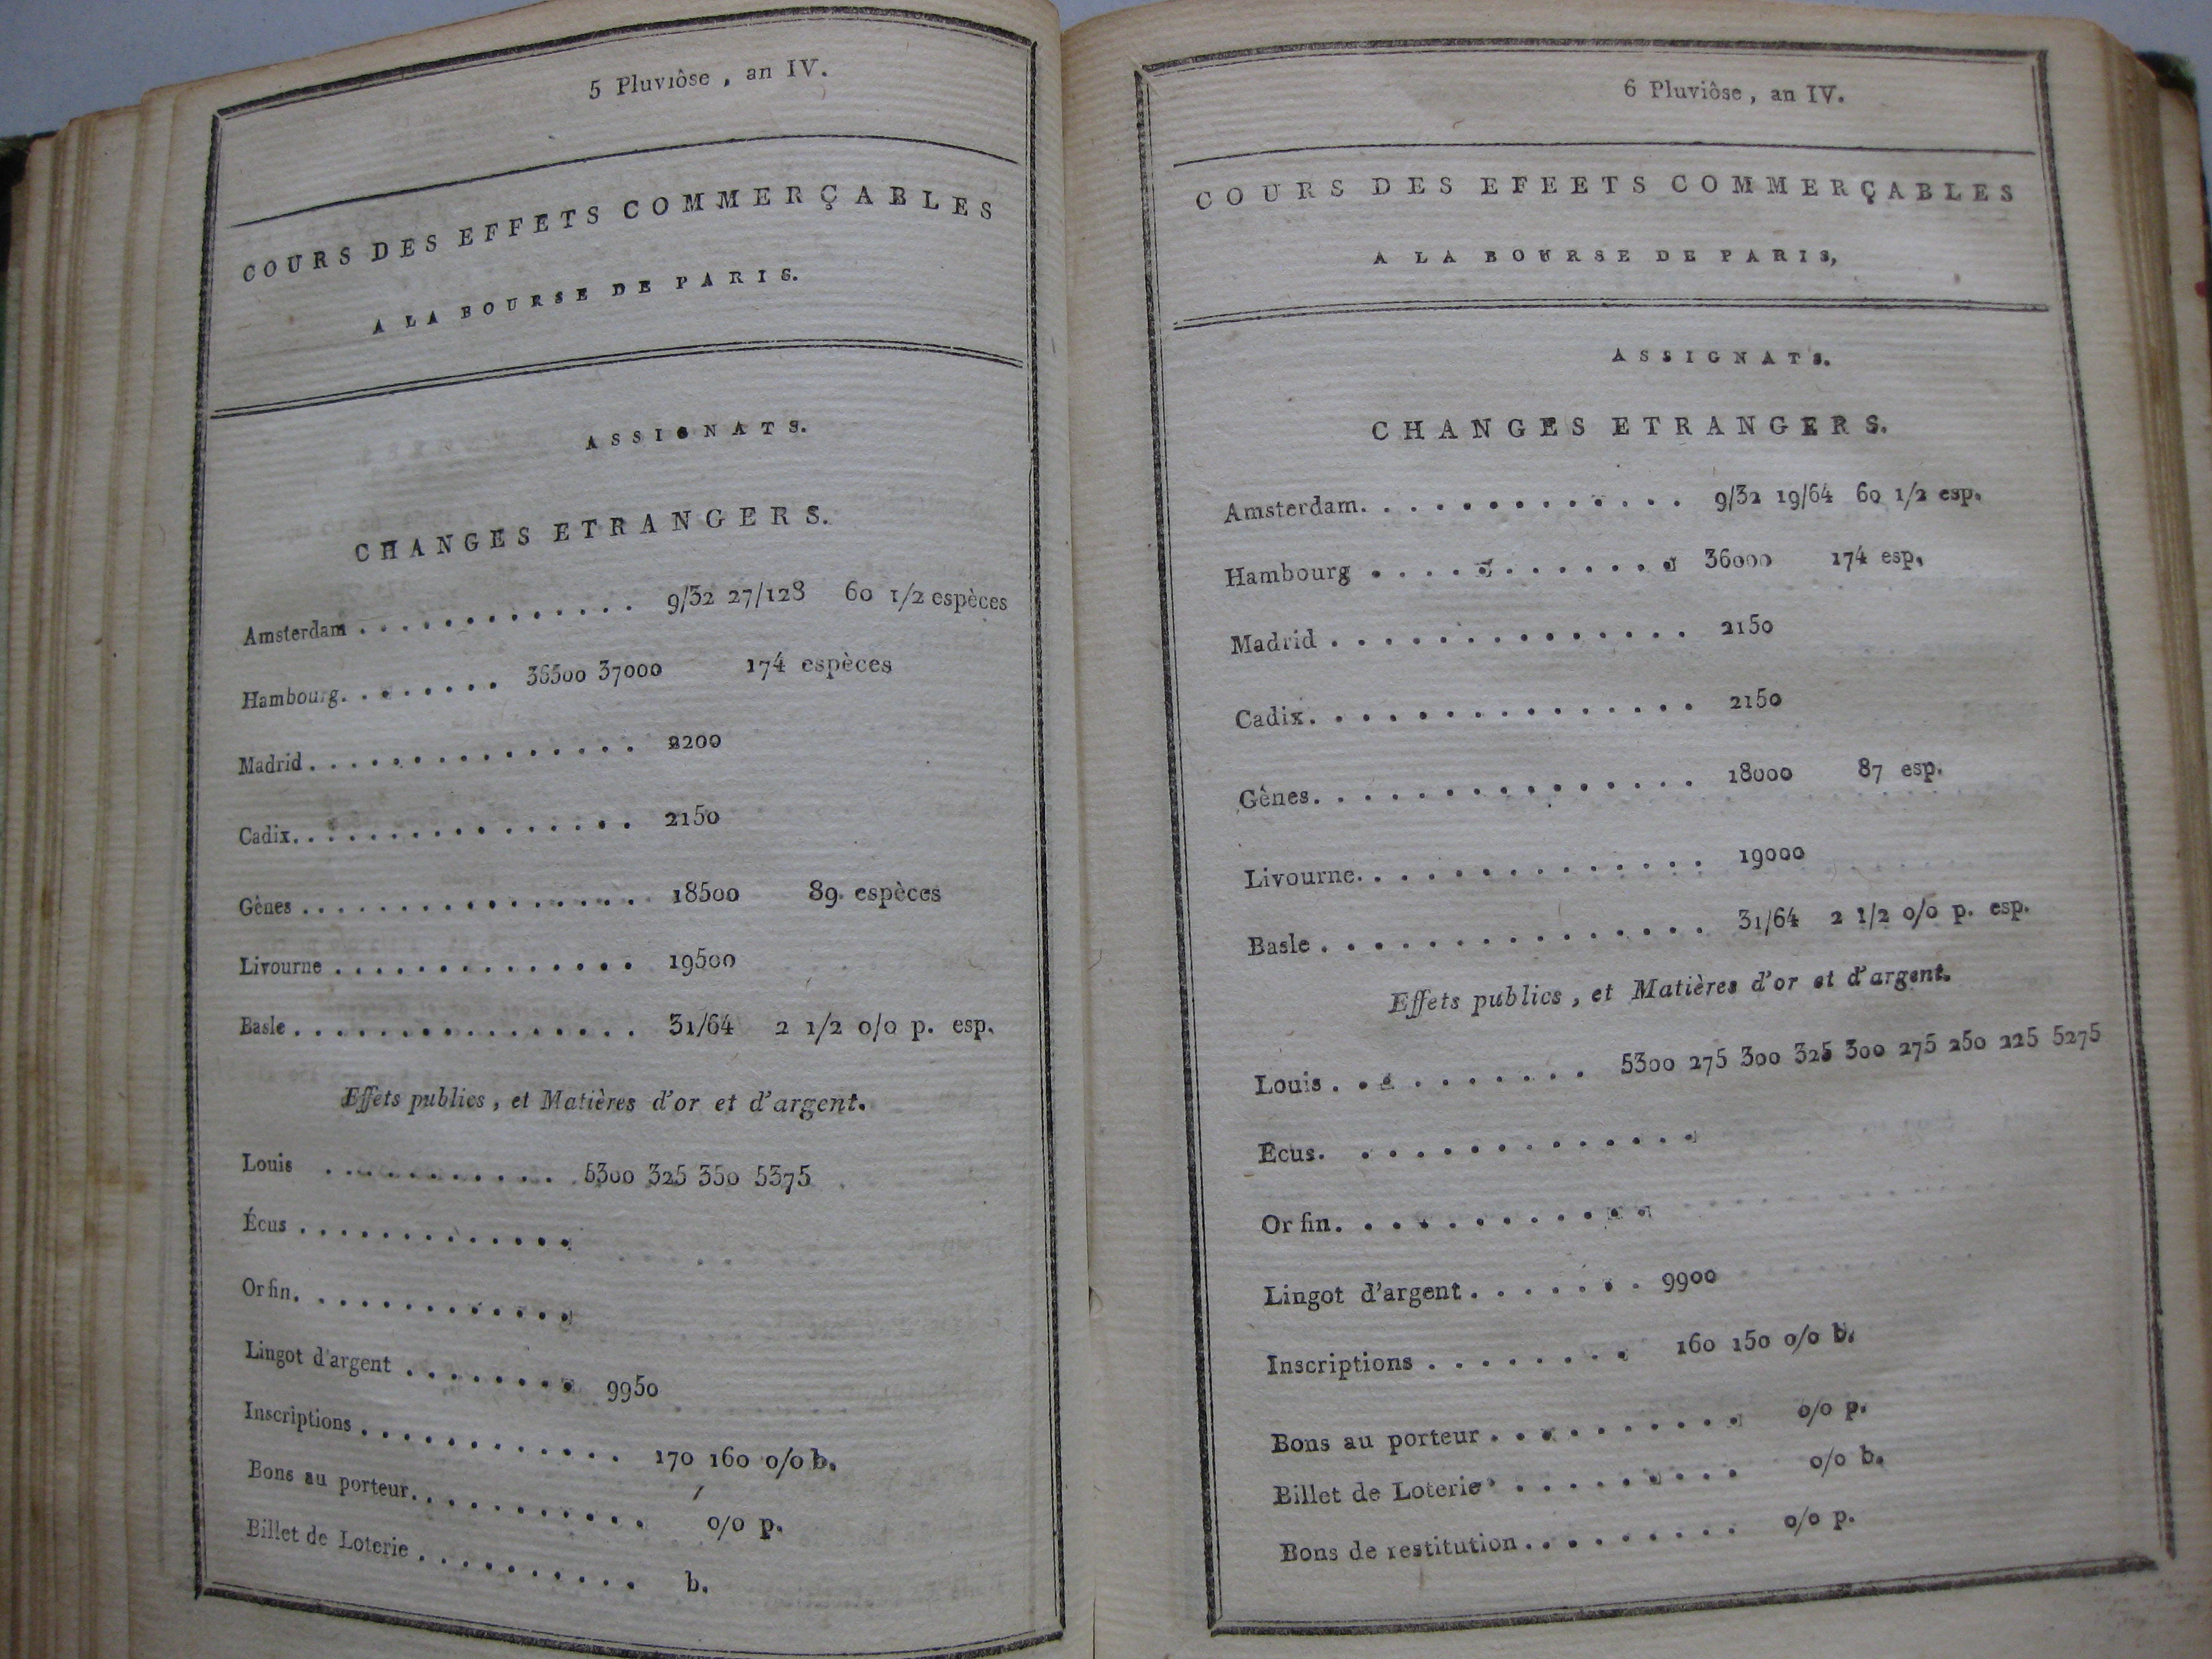 5 Pluviôse, an IV.
COURS DES EFFETS COMMERÇABLES
A LA BOURSE DE PARIS.
ASSIGNATS.
CHANGES ETRANGERS.
Amsterdam . . . . . . . . . . . . . 9/32 27/128 60 1/2 espèces
Hambourg. . . . . . . . 36500 37000 174 espèces
Madrid . . . . . . . . . . . . . . . 2200
Cadix. . . . . . . . . . . . . . . . 2150
Gènes . . . . . . . . . . . . . . . . 18500 89. espèces
Livourne . . . . . . . . . . . . . . 19500
Basle . . . . . . . . . . . . . . . . 31/64 2 1/2 o/o p. esp.
Effets publics, et Matières d'or et d'argent.
Louis . . . . . . . . . . . 5300 325 350 5375
Écus . . . . . . . . . . . . .
Or fin. . . . . . . . . . . . .
Lingot d'argent . . . . . . . . 9950
Inscriptions . . . . . . . . . . . . 170 160 o/o b.
Bons au porteur. . . . . . . . . . . . o/o p.
Billet de Loterie . . . . . . . . . . b.
6 Pluviôse, an IV.
COURS DES EFEETS COMMERÇABLES
A LA BOURSE DE PARIS,
ASSIGNATS.
CHANGES ETRANGERS.
Amsterdam. . . . . . . . . . . . 9/32 19/64 60 1/2 esp.
Hambourg . . . . . . . . . . . 36000 174 esp.
Madrid . . . . . . . . . . . . . . 2150
Cadix. . . . . . . . . . . . . . . 2150
Gênes. . . . . . . . . . . . . . . 18000 87 esp.
Livourne. . . . . . . . . . . . . . 19000
Basle . . . . . . . . . . . . . . . 31/64 2 1/2 o/o p. esp.
Effets publics, et Matières d'or et d'argent.
Louis . . . . . . . . . . 5300 275 300 325 300 275 250 225 5275
Ecus. . . . . . . . . . . . . .
Or fin. . . . . . . . . . . . .
Lingot d'argent . . . . . . . 9900
Inscriptions . . . . . . . . 160 150 o/o b.
Bons au porteur . . . . . . . . . . o/o p.
Billet de Loterie . . . . . . . . . . o/o b.
Bons de restitution . . . . . . . . . o/o p.